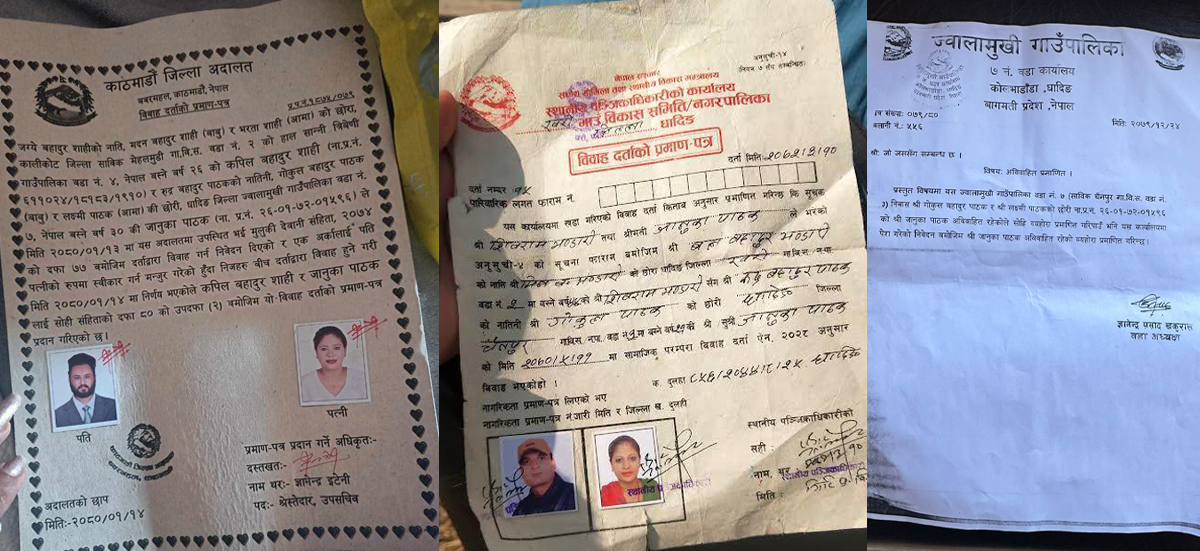 काठमाडौं जिल्ला अदालत
बबरमहल, काठमाडौं, नेपाल
विवाह दर्ताको प्रमाण-पत्र
प्र.प.नं.१८५४/०७९
जग्गे बहादुर शाहीको नाति, मदन बहादुर शाही (बाबु) र भरता शाही (आमा) को छोरा,
कालीकोट जिल्ला साविक मेहलमुडी गा.बि.स. वडा नं. २ को हाल सान्नी त्रिबेणी
गाउँपालिका वडा नं. ४, नेपाल बस्ने वर्ष २६ को कपिल बहादुर शाही (ना.प्र.नं.
६११०२४/१८१८३/१९१०) र रुद्र बहादुर पाठकको नातिनी, गोकुल बहादुर पाठक
(बाबु) र लक्ष्मी पाठक (आमा) की छोरी, धादिङ जिल्ला ज्वालामुखी गाउँपालिका वडा नं.
७, नेपाल बस्ने वर्ष ३० की जानुका पाठक (ना. प्र.नं. २६-०१-७२-०१५९६) ले
मिति २०८०/०१/१३ मा यस अदालतमा उपस्थित भई मुलुकी देवानी संहिता, २०७४
को दफा ७७ बमोजिम दर्ताद्वारा विवाह गर्न निवेदन दिएको र एक अर्कालाई पति
पत्नीको रुपमा स्वीकार गर्न मन्जुर गरेको हुँदा निजहरु बीच दर्ताद्वारा विवाह हुने गरी
मिति २०८०/०१/१४ मा निर्णय भएकोले कपिल बहादुर शाही र जानुका पाठक
लाई सोही संहिताको दफा ८० को उपदफा (२) बमोजिम यो विवाह दर्ताको प्रमाण-पत्र
प्रदान गरिएको छ।
पति
पत्नी
प्रमाण-पत्र प्रदान गर्ने अधिकृत:-
दस्तखत:-
नाम थर:- ज्ञानेन्द्र इटेनी
पद:- श्रेस्तेदार, उपसचिव
अदालतको छाप
मिति:-२०८०/०१/१४
अनुसूची-१४
(नियम ७ सँग सम्बन्धित)
नेपाल सरकार
स्थानीय विकास मन्त्रालय
स्थानीय पञ्जिकाधिकारीको कार्यालय
गाउँ विकास समिति/नगरपालिका
धादिङ
विवाह दर्ताको प्रमाण-पत्र
दर्ता मिति
दर्ता नम्बर
पारिवारिक लगत फाराम नं.
यस कार्यालयमा खडा गरिएको विवाह दर्ता किताब अनुसार प्रमाणित गरिन्छ कि सूचक
श्री शिवराम भण्डारी तथा श्रीमती जानुका पाठक ले भरेको
अनुसूची-४ को सूचना फाराम बमोजिम श्री बहादुर भण्डारी
को नाति श्री भण्डारी को छोरा धादिङ जिल्ला
वडा नं. 2 मा बस्ने वर्ष को श्री शिवराम भण्डारी सँग श्री रुद्र बहादुर पाठक
को नातिनी श्री गोकुल पाठक को छोरी धादिङ जिल्ला
चैनपुर गाविस नपा. वडा नं. मा बस्ने वर्ष की श्री सुश्री जानुका पाठक
को मिति मा सामाजिक परम्परा विवाह दर्ता ऐन, २०२८ अनुसार
विवाह भएकोहो ।
क. दुलहा धादिङ
नागरिकता प्रमाण-पत्र लिएको भए
नागरिकता प्रमाण-पत्र नं.जारी मिति र जिल्ला ख. दुलही
स्थानीय पञ्जिकाधिकारीको
सही
नाम, थर
स्थानीय पञ्जिकाधिकारी
मिति :
ज्वालामुखी गाउँपालिका
७ नं. वडा कार्यालय
धादिङ
बागमती प्रदेश, नेपाल
पत्र संख्या: ०७९/८०
चलानी नं.: ५५६
मिति: २०७९/१२/२४
श्री: जो जससँग सम्बन्ध छ ।
विषय: अविवाहित प्रमाणित ।
प्रस्तुत विषयमा यस ज्वालामुखी गाउँपालिका वडा नं. ७ (साविक चैनपुर गा.वि.स. वडा नं.
२) निवास श्री गोकुल बहादुर पाठक र श्री लक्ष्मी पाठकको छोरी ना.प्र.नं. २६-०१-७२-०१५९६
को श्री जानुका पाठक अविवाहित रहेकोले सोही व्यहोरा प्रमाणित गरिपाउँ भनि यस कार्यालयमा
पेश गरेको निवेदन बमोजिम श्री जानुका पाठक अविवाहित रहेको व्यहोरा प्रमाणित गरिन्छ।
ज्ञानेन्द्र प्रसाद
वडा अध्यक्ष